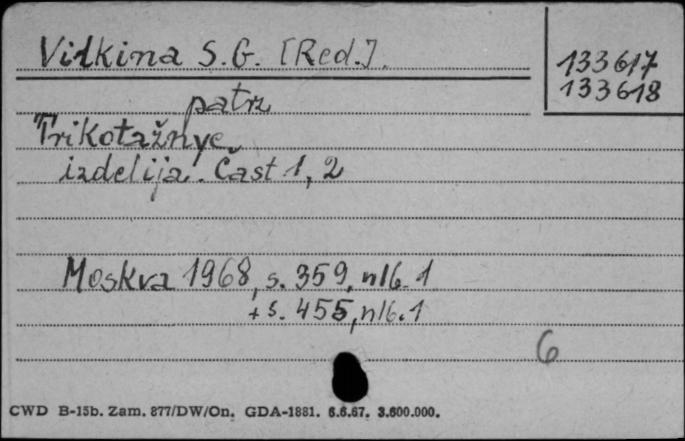 Vitkina S.G. [Red.].
133617
133618
patrz
Trikotažnye
izdelija. Čast 1, 2
Moskva 1968, s. 359, nlb. 1
+ s. 455, nlb. 1
6
CWD B-15b. Zam. 877/DW/On. GDA-1881. 6.6.67. 3.600.000.